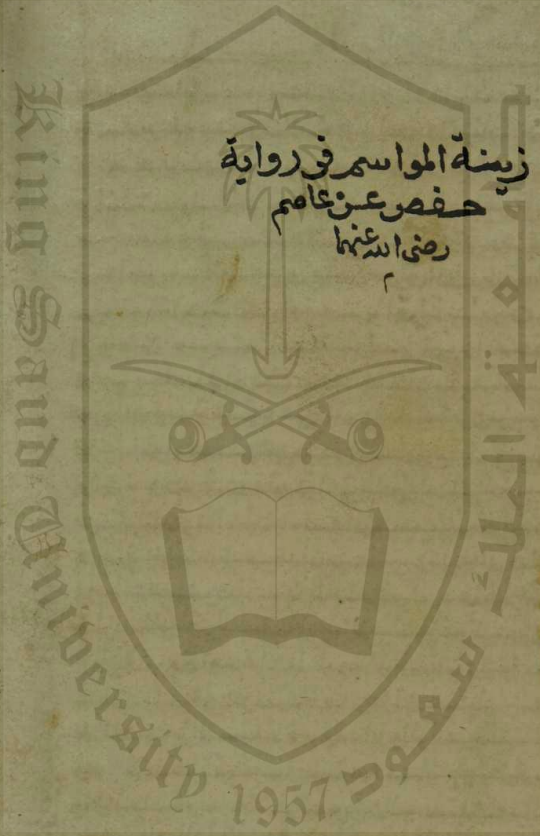 زينة المواسم في رواية
حفص عن عاصم
رضى الله عنهما
م
King Saud University 1957
جامعة الملك سعود